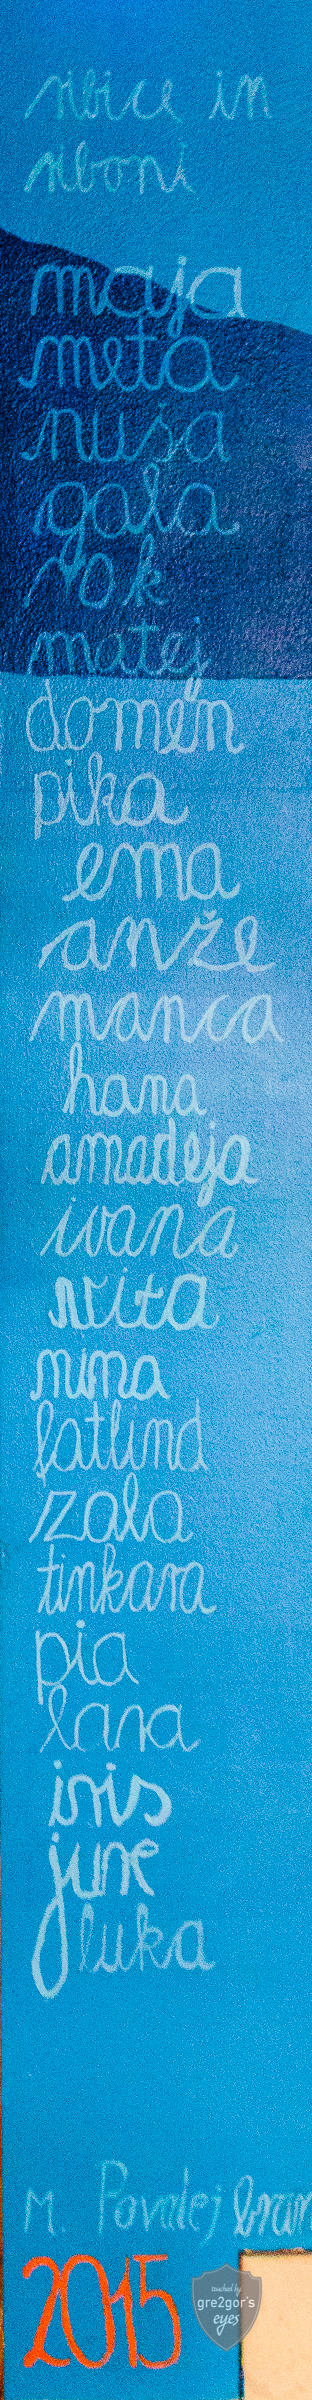 ribice in
riboni
maja
meta
nuša
gala
rok
matej
domen
pika
ema
anže
manca
hana
amadeja
ivana
vita
nina
fatlind
zala
tinkara
pia
lara
iris
june
luka
M. Povalej
2015
touched by
gre2gor's
eyes